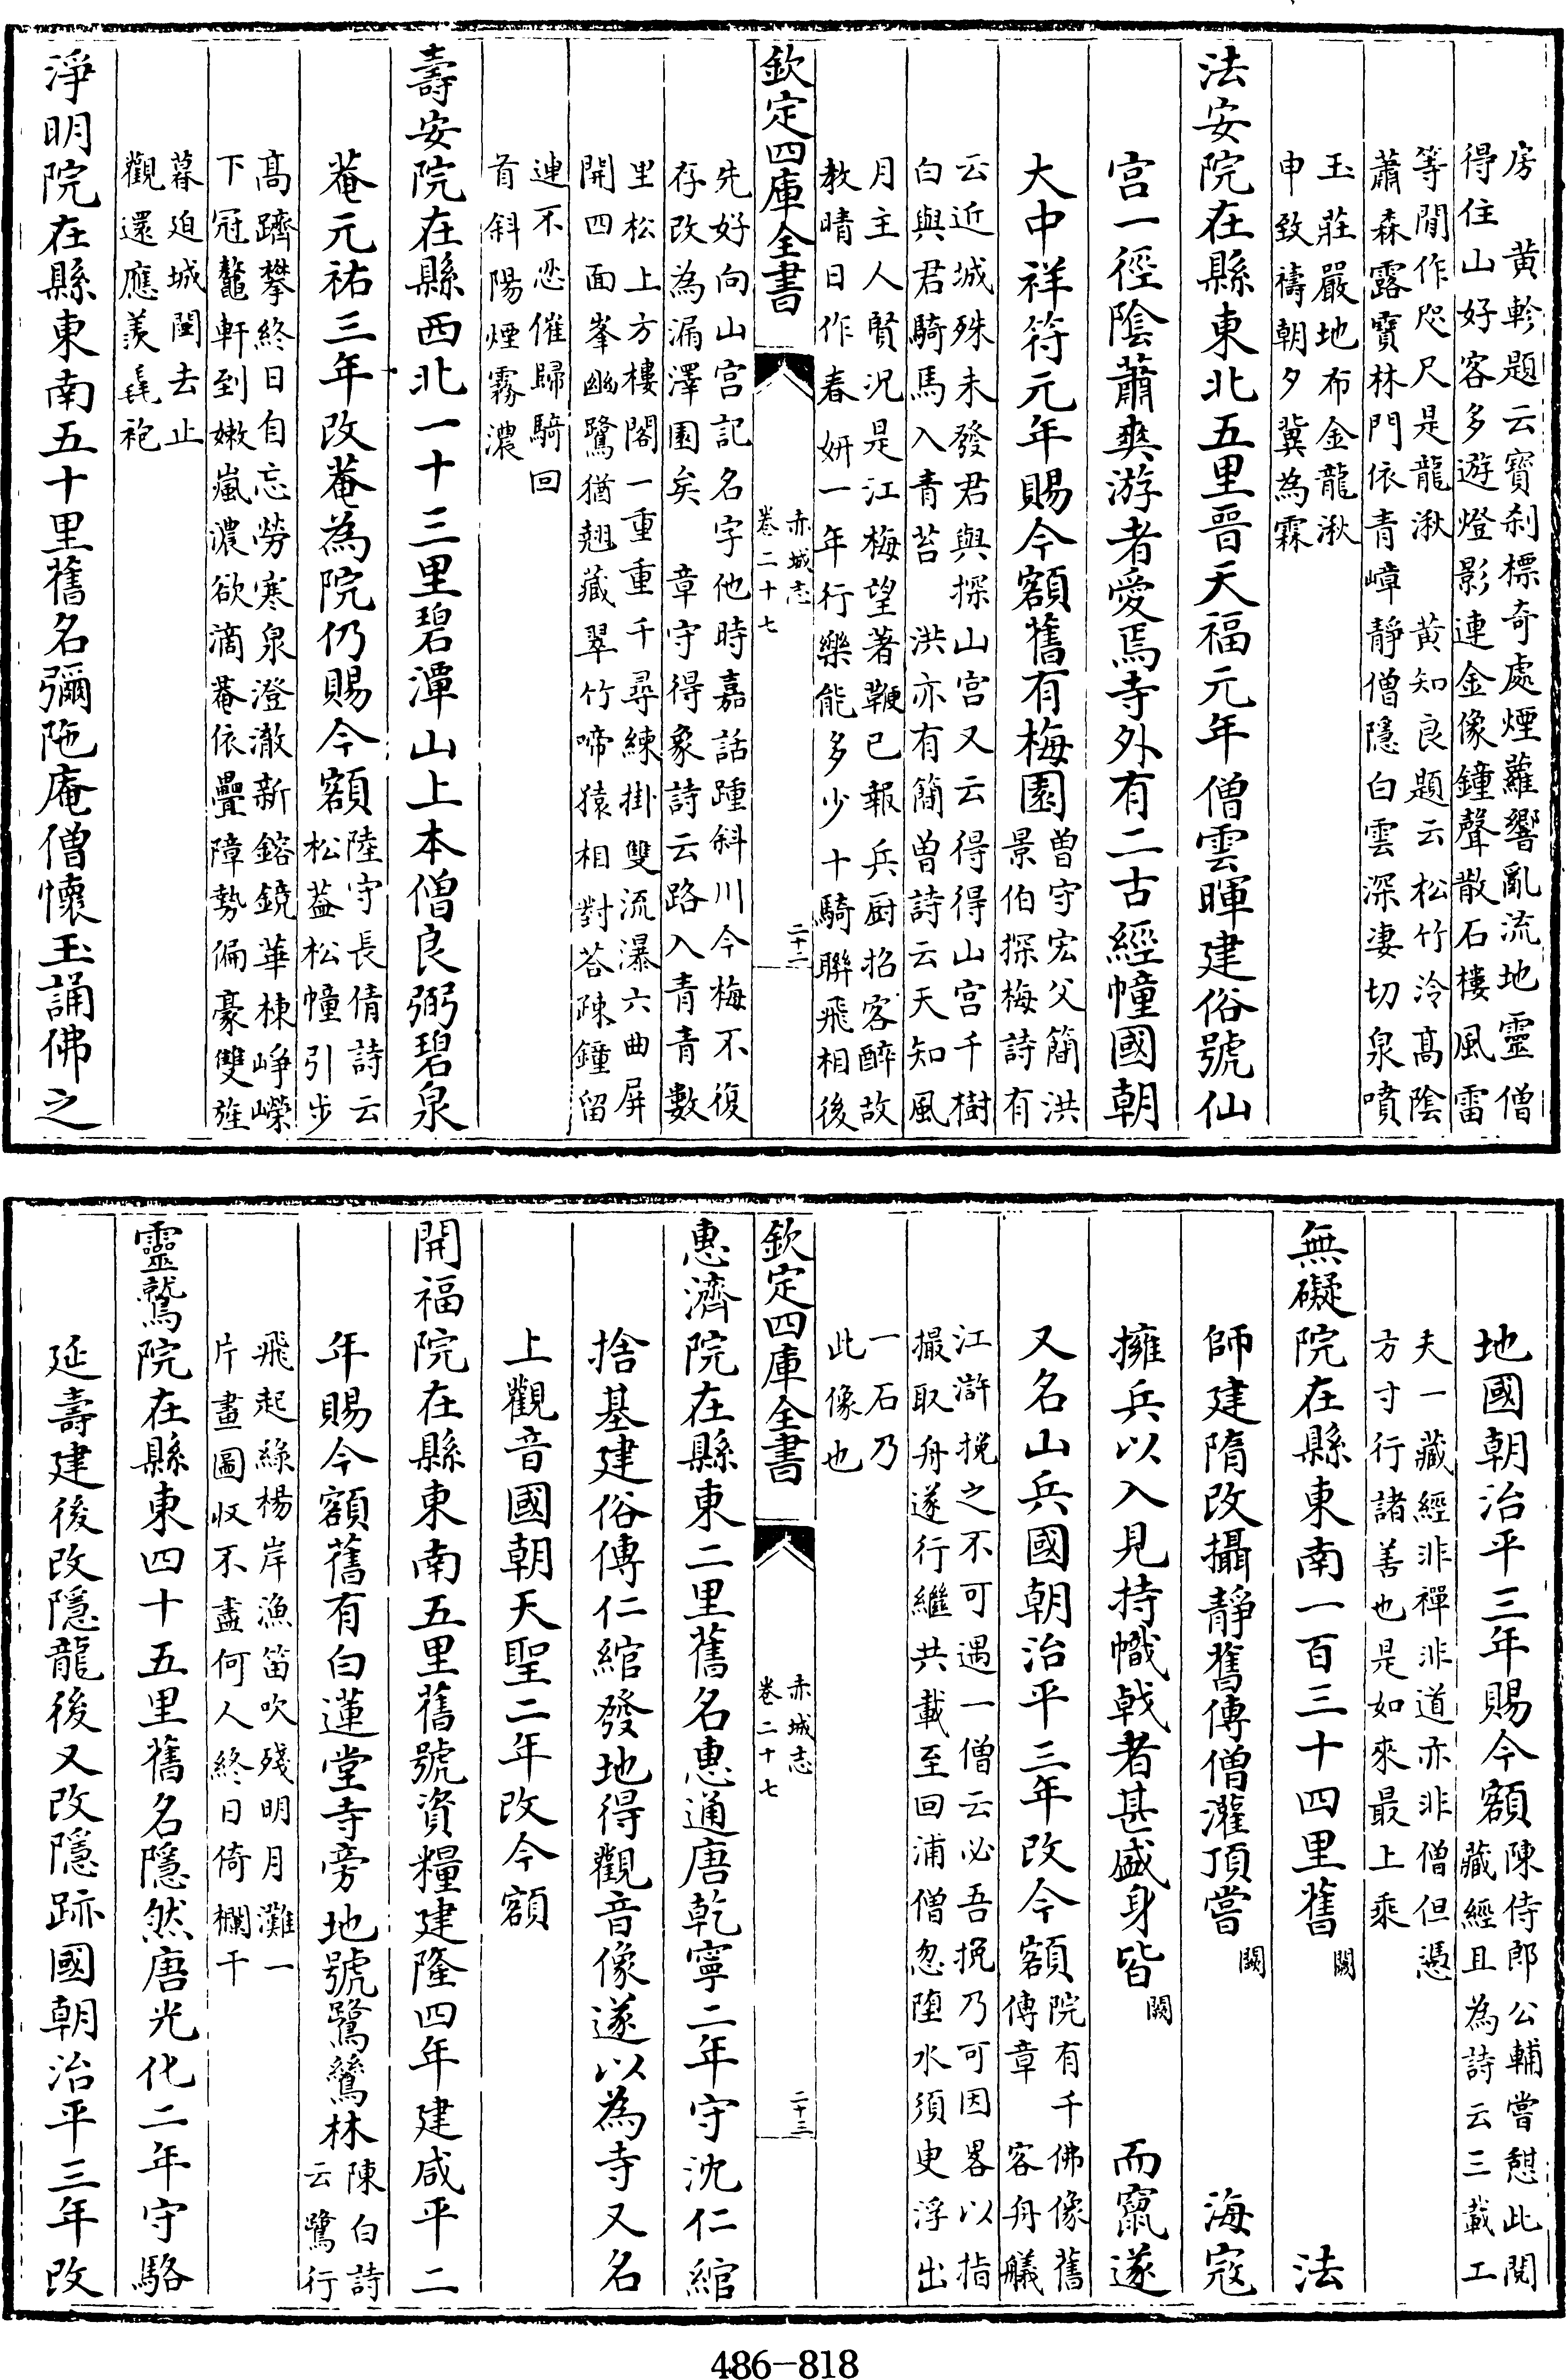 房　黄軫題云寳刹標奇處煙蘿響亂流地靈僧
得住山好客多遊燈影連金像鐘聲散石樓風雷
等閒作咫尺是龍湫　黄知良題云松竹泠髙陰
蕭森露寳林門依青嶂靜僧隱白雲深淒切泉噴
玉莊嚴地布金龍湫
申致禱朝夕冀為霖
法安院在縣東北五里晉天福元年僧雲暉建俗號仙
宫一徑陰蕭爽游者愛焉寺外有二古經幢國朝
大中祥符元年賜今額舊有梅園
曽守宏父簡洪
景伯探梅詩有
云近城殊未發君與探山宫又云得得山宫千樹
白與君騎馬入青苔　洪亦有簡曽詩云天知風
月主人賢況是江梅望著鞭已報兵厨招客醉故
教晴日作春妍一年行樂能多少十騎聯飛相後
欽定四庫全書
赤城志
卷二十七
二十二
先好向山宫記名字他時嘉話踵斜川今梅不復
存改為漏澤園矣　章守得象詩云路入青青數
里松上方樓閣一重重千尋練掛雙流瀑六曲屏
開四面峯幽鷺猶翹藏翠竹啼猿相對荅疎鐘留
連不忍催歸騎回
首斜陽煙霧濃
壽安院在縣西北一十三里碧潭山上本僧良弼碧泉
菴元祐三年改菴為院仍賜今額
陸守長倩詩云
松葢松幢引步
髙躋攀終日自忘勞寒泉澄澈新鎔鏡華棟崢嶸
下冠鼇軒到嫩嵐濃欲滴菴依疊障勢偏豪雙旌
暮迫城闉去止
觀還應羨毳袍
淨明院在縣東南五十里舊名彌陁庵僧懷玉誦佛之
地國朝治平三年賜今額
陳侍郎公輔嘗憇此閲
藏經且為詩云三載工
夫一藏經非禪非道亦非僧但憑
方寸行諸善也是如來最上乘
無礙院在縣東南一百三十四里舊闕法
師建隋改攝靜舊傳僧灌頂嘗闕海宼
擁兵以入見持幟㦸者甚盛身皆闕而竄遂
又名山兵國朝治平三年改今額
院有千佛像舊
傳章　客舟艤
江滸挽之不可遇一僧云必吾挽乃可因畧以指
撮取舟遂行繼共載至回浦僧忽墮水須臾浮出
一石乃
此像也
欽定四庫全書
赤城志
卷二十七
二十三
惠濟院在縣東二里舊名惠通唐乾寧二年守沈仁綰
捨基建俗傳仁綰發地得觀音像遂以為寺又名
上觀音國朝天聖二年改今額
開福院在縣東南五里舊號資糧建隆四年建咸平二
年賜今額舊有白蓮堂寺旁地號鷺鷥林
陳白詩
云鷺行
飛起綠楊岸漁笛吹殘明月灘一
片畫圖收不盡何人終日倚欄干
靈鷲院在縣東四十五里舊名隱然唐光化二年守駱
延壽建後改隱龍後又改隱跡國朝治平三年改
486-818